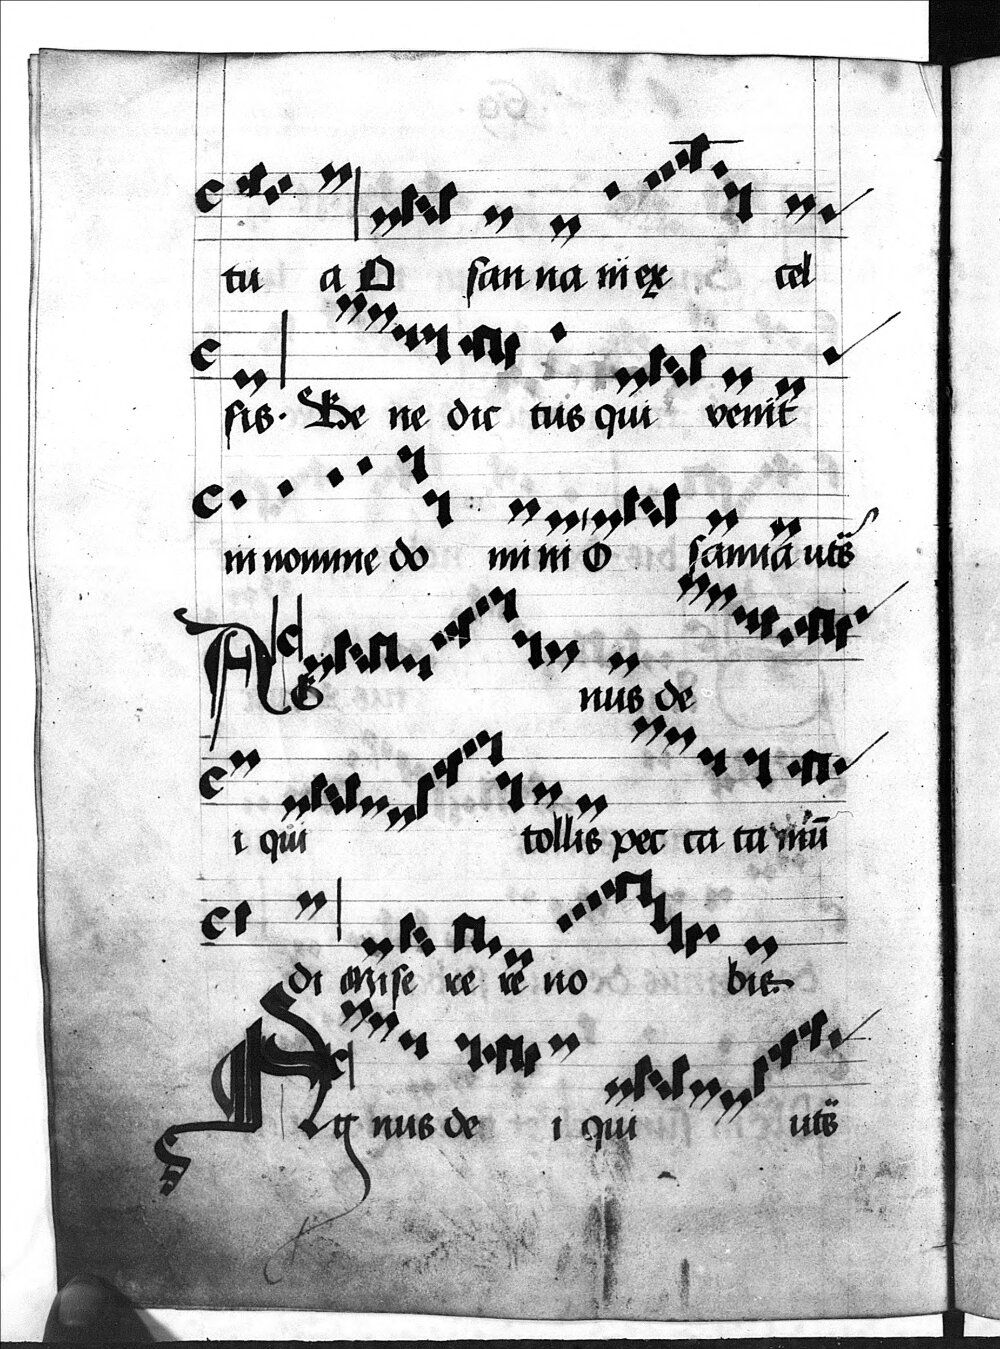 tu a O san na in ex cel
sis. Be ne dic tus qui venit
in nomine do mi ni O sanna uts̄
AG nus de
i qui tollis pec ca ta mū
di Mise re re no bis.
Ag nus de i qui uts̄